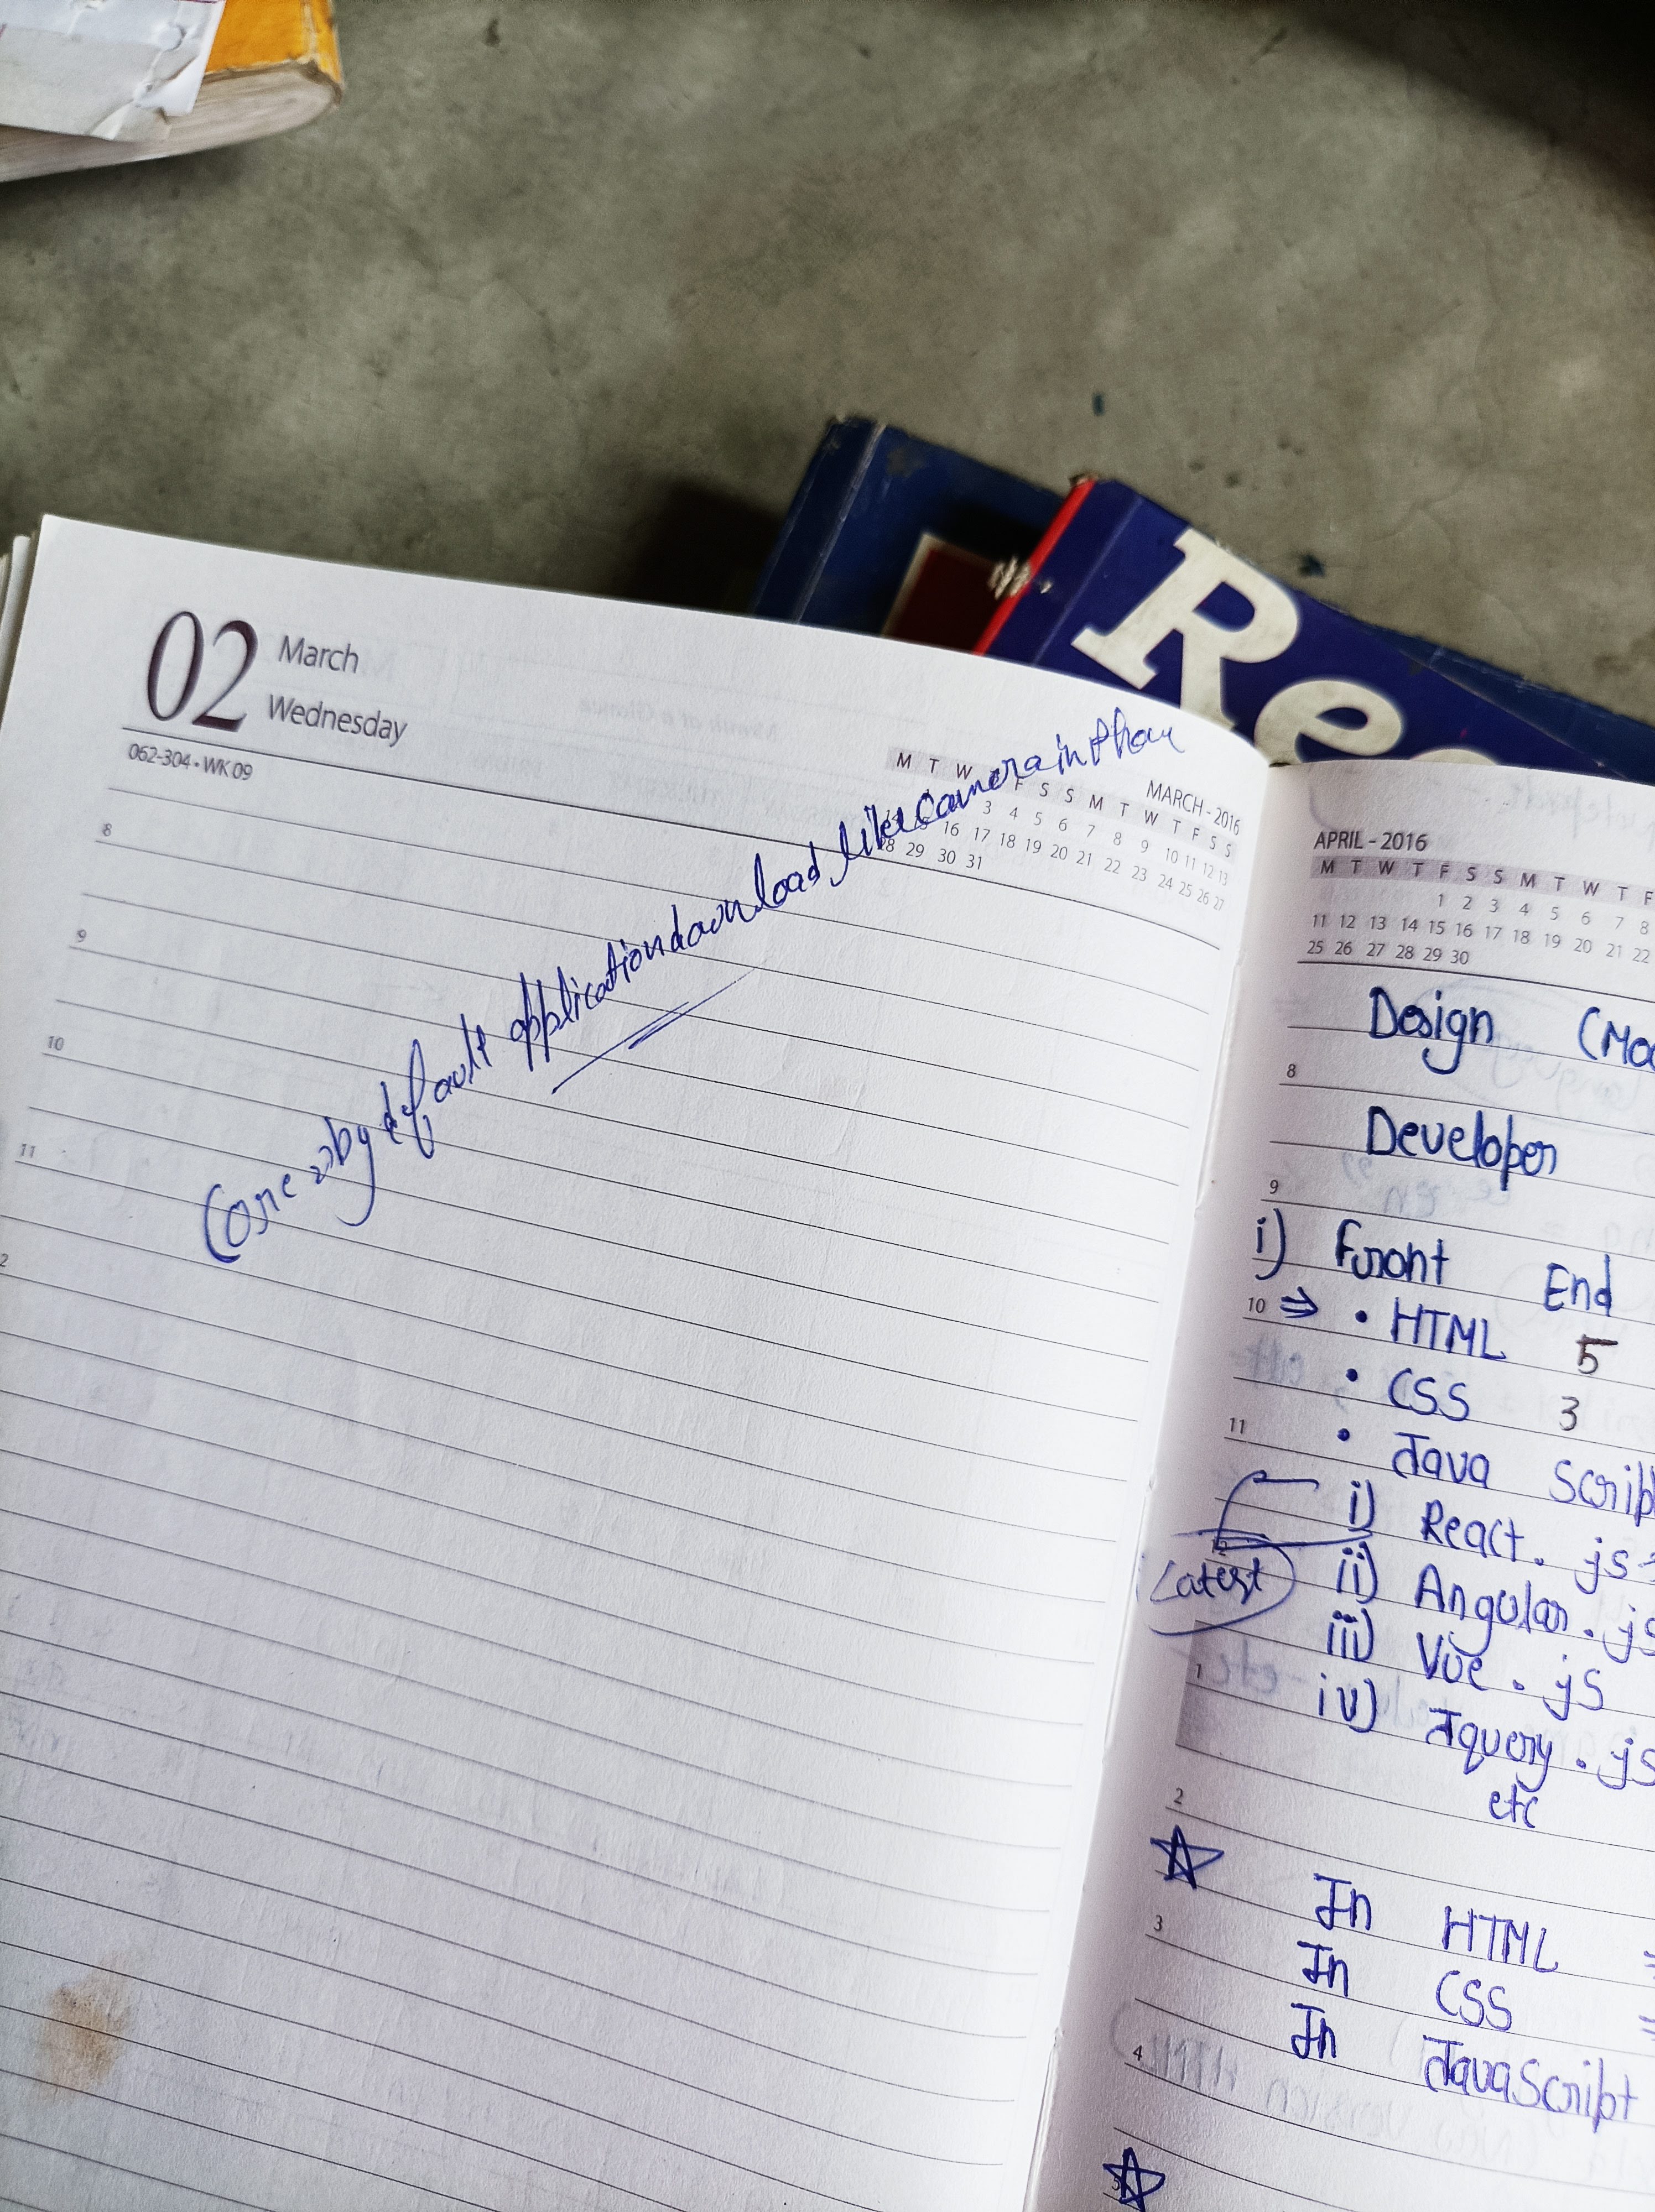 Re
02 March
Wednesday
062-304 • WK 09
MARCH - 2016
M T W F S S M T W T F S S
3 4 5 6 7 8 9 10 11 12 13
16 17 18 19 20 21 22 23 24 25 26 27
28 29 30 31
8
9
10
11
Core by default application download, like Camera in Phone
APRIL - 2016
M T W T F S S M T W T F
1 2 3 4 5 6 7 8
11 12 13 14 15 16 17 18 19 20 21 22
25 26 27 28 29 30
Design
8
Developer
9
i) Front End
10 ⇒ • HTML 5
• CSS 3
11
• Java Script
i) React.js
Latest
ii) Angular.js
iii) Vue.js
1
iv) Jquery.js
etc
2
In HTML
3
In CSS
In JavaScript
4